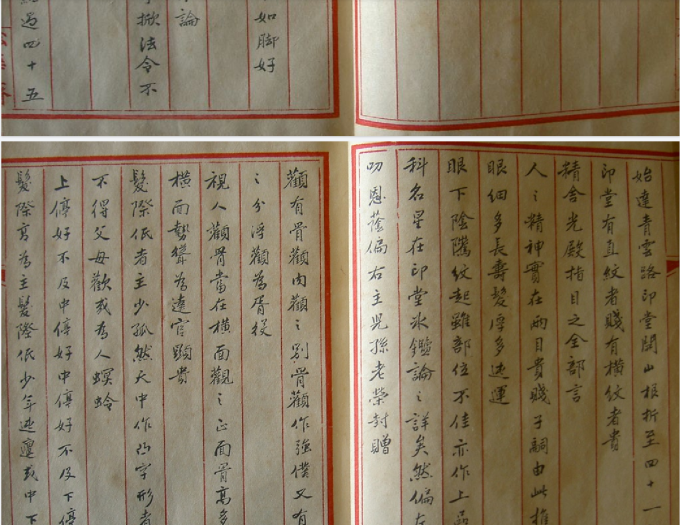 如脚好
論
掀法令不
過四十五
始達青雲路印堂開山根折至四十一
印堂有直紋者賤有橫紋者貴
精舍光殿指目之全部言
人之精神實在兩目貴賤子嗣由此推
眼細多長壽髮厚多速運
眼下陰隲紋起雖部位不佳亦作上品
科名星在印堂冰鑑論之詳矣然偏左
叨恩蔭偏右主児孫老榮封贈
顴有骨顴肉顴之別骨顴作強僕又有
之分浮顴為胥役
視人顴骨當在橫面觀之正面骨高多
橫面勢聳為達官顯貴
髮際低者主少孤然天中作凸字形者
不得父母歡或為人螟蛉
上停好不及中停好中停好不及下停
髮際高為主髮際低少年迍邅或中下